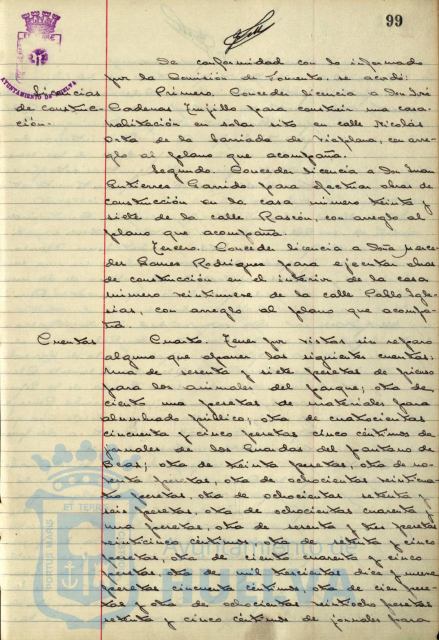 99
AYUNTAMIENTO DE HUELVA
De conformidad con lo informado
por la Comisión de Fomento, se acordó:
Licencias de construcción.
Primero. Conceder licencia a Don José
Cadenas Trujillo para construir una casa
habitación en solar sito en calle Nicolás
Orta de la barriada de Viaplana, con arre-
glo al plano que acompaña.
Segundo. Conceder licencia a Don Juan
Gutierrez Garrido para efectuar obras de
construcción en la casa número treinta y
siete de la calle Rascón, con arreglo al
plano que acompaña.
Tercero. Conceder licencia a Doña Merce-
des Gomez Rodriguez para ejecutar obras
de construcción en el interior de la casa
número veintinueve de la calle Pablo Igle-
sias, con arreglo al plano que acompa-
ña.
Cuentas
Cuarto. Tener por vistas sin reparo
alguno que oponer las siguientes cuentas:
Una de sesenta y siete pesetas de pienso
para los animales del parque; otra de
ciento una pesetas de materiales para
alumbrado público; otra de cuatrocientas
cincuenta y cinco pesetas cinco céntimos de
jornales de los Guardas del pantano de
Beas; otra de treinta pesetas, otra de no-
venta pesetas, otra de ochocientas veinticua-
tro pesetas, otra de ochocientas setenta y
seis pesetas, otra de ochocientas cuarenta y
una pesetas, otra de sesenta y tres pesetas
veinticinco céntimos, otra de setenta y cinco
pesetas, otra de ciento cuarenta y cinco
pesetas, otra de mil trescientas diez y nueve
pesetas cincuenta céntimos, otra de cien pese-
tas y otra de ochocientas veintiocho pesetas
setenta y cinco céntimos de jornales para
ET TERRÆ
PORTUS MARIS
Ayuntamiento de
HUELVA